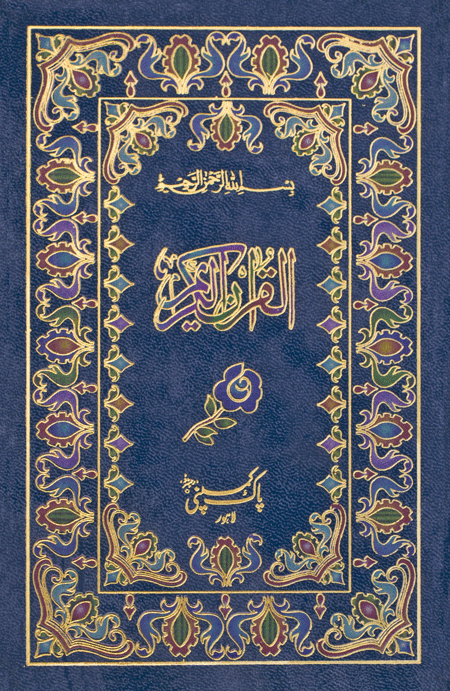 بسم الله الرحمن الرحيم
القرآن الكريم
پاک کمپنی
لاہور